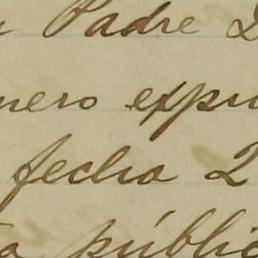 Padre
nero expu
fecha 2
públic